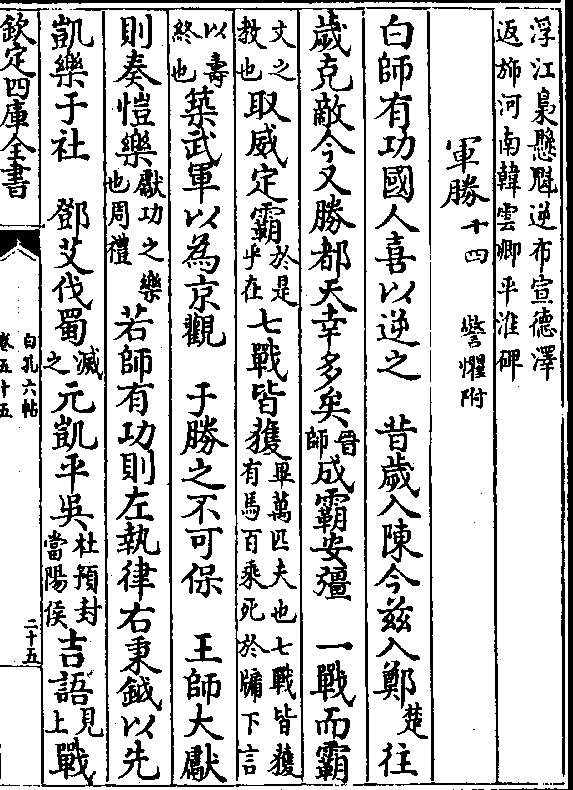 浮江梟懸魁逆布宣德澤
返斾河南韓雲卿平淮碑
軍勝十四 警懼附
白師有功國人喜以逆之 昔歳入陳今兹入鄭楚往
歳克敵今又勝都天幸多矣晉師成霸安彊 一戰而霸
文之教也取威定霸於是乎在七戰皆獲畢萬匹夫也七戰皆獲有馬百乘死於牖下言
以壽終也築武軍以為京觀 于勝之不可保 王師大獻
則奏愷樂獻功之樂也周禮 若師有功則左執律右秉鉞以先
凱樂于社 鄧艾伐蜀滅之元凱平吳杜預封當陽侯吉語見上戰
欽定四庫全書
白孔六帖
卷五十五
二十五